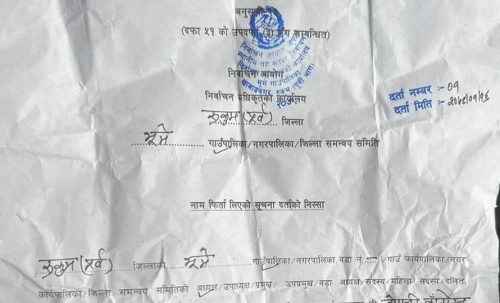 अनुसूची
(दफा ५१ को उपदफा (३) सँग सम्बन्धित)
निर्वाचन आयोग
निर्वाचन अधिकृतको कार्यालय
रुकुम (पूर्व) जिल्ला
भूमे गाउँपालिका/नगरपालिका/जिल्ला समन्वय समिति
दर्ता नम्बर :-
दर्ता मिति :-
नाम फिर्ता लिएको सूचना दर्ताको निस्सा
रुकुम (पूर्व) जिल्लाको भूमे गाउँपालिका/नगरपालिका वडा नं. /गाउँ कार्यपालिका/नगर
कार्यपालिका/जिल्ला समन्वय समितिको अध्यक्ष/उपाध्यक्ष/प्रमुख/ उपप्रमुख/वडा अध्यक्ष/सदस्य/महिला सदस्य/दलित